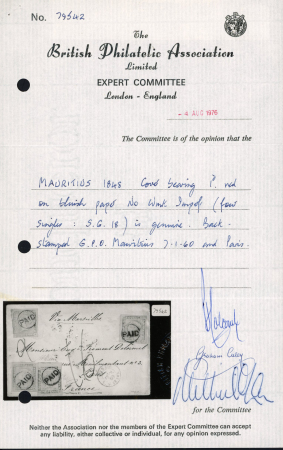 No. 79542
The
British Philatelic Association
Limited
EXPERT COMMITTEE
London - England
- 4 AUG 1976
The Committee is of the opinion that the
MAURITIUS 1848 Cover bearing 1d. red
on bluish paper No Wmk Imperf (four
singles : S.G. 18) is genuine. Back-
stamped G.P.O. Mauritius 7-1-60 and Paris.
PAID
PAID
Via Marseille
79542
Monsieur
PAID
PAID
France
for the Committee
Neither the Association nor the members of the Expert Committee can accept
any liability, either collective or individual, for any opinion expressed.